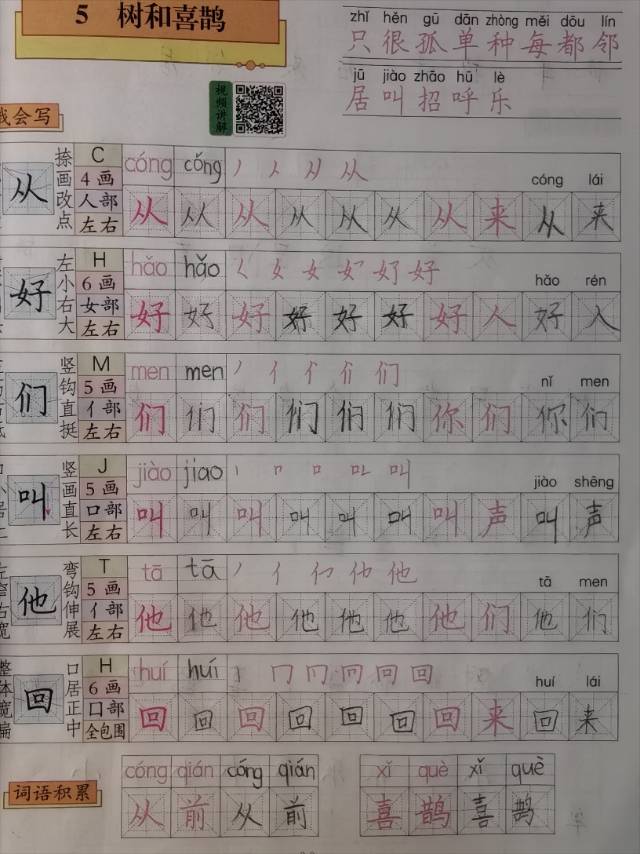 5 树和喜鹊
zhǐ hěn gū dān zhòng měi dōu lín
只 很 孤 单 种 每 都 邻
jū jiào zhāo hū lè
居 叫 招 呼 乐
视频讲解
我会写
从 捺画改点 C 4画 人部 左右
cóng cǒng cóng lái
从 从 从 从 从 从 从 来 从 来
好 左小右大 H 6画 女部 左右
hǎo hǎo hǎo rén
好 好 好 好 好 好 好 人 好 入
们 竖钩直挺 M 5画 亻部 左右
men men nǐ men
们 们 们 们 们 们 你 们 你 们
叫 竖画直长 J 5画 口部 左右
jiào jiao jiào shēng
叫 叫 叫 叫 叫 叫 叫 声 叫 声
他 弯钩伸展 T 5画 亻部 左右
tā tā tā men
他 他 他 他 他 他 他 们 他 们
回 整体宽扁 口居正中 H 6画 囗部 全包围
huí huí huí lái
回 回 回 回 回 回 回 来 回 来
词语积累
cóng qián cóng qián xǐ què xǐ què
从 前 从 前 喜 鹊 喜 鹊